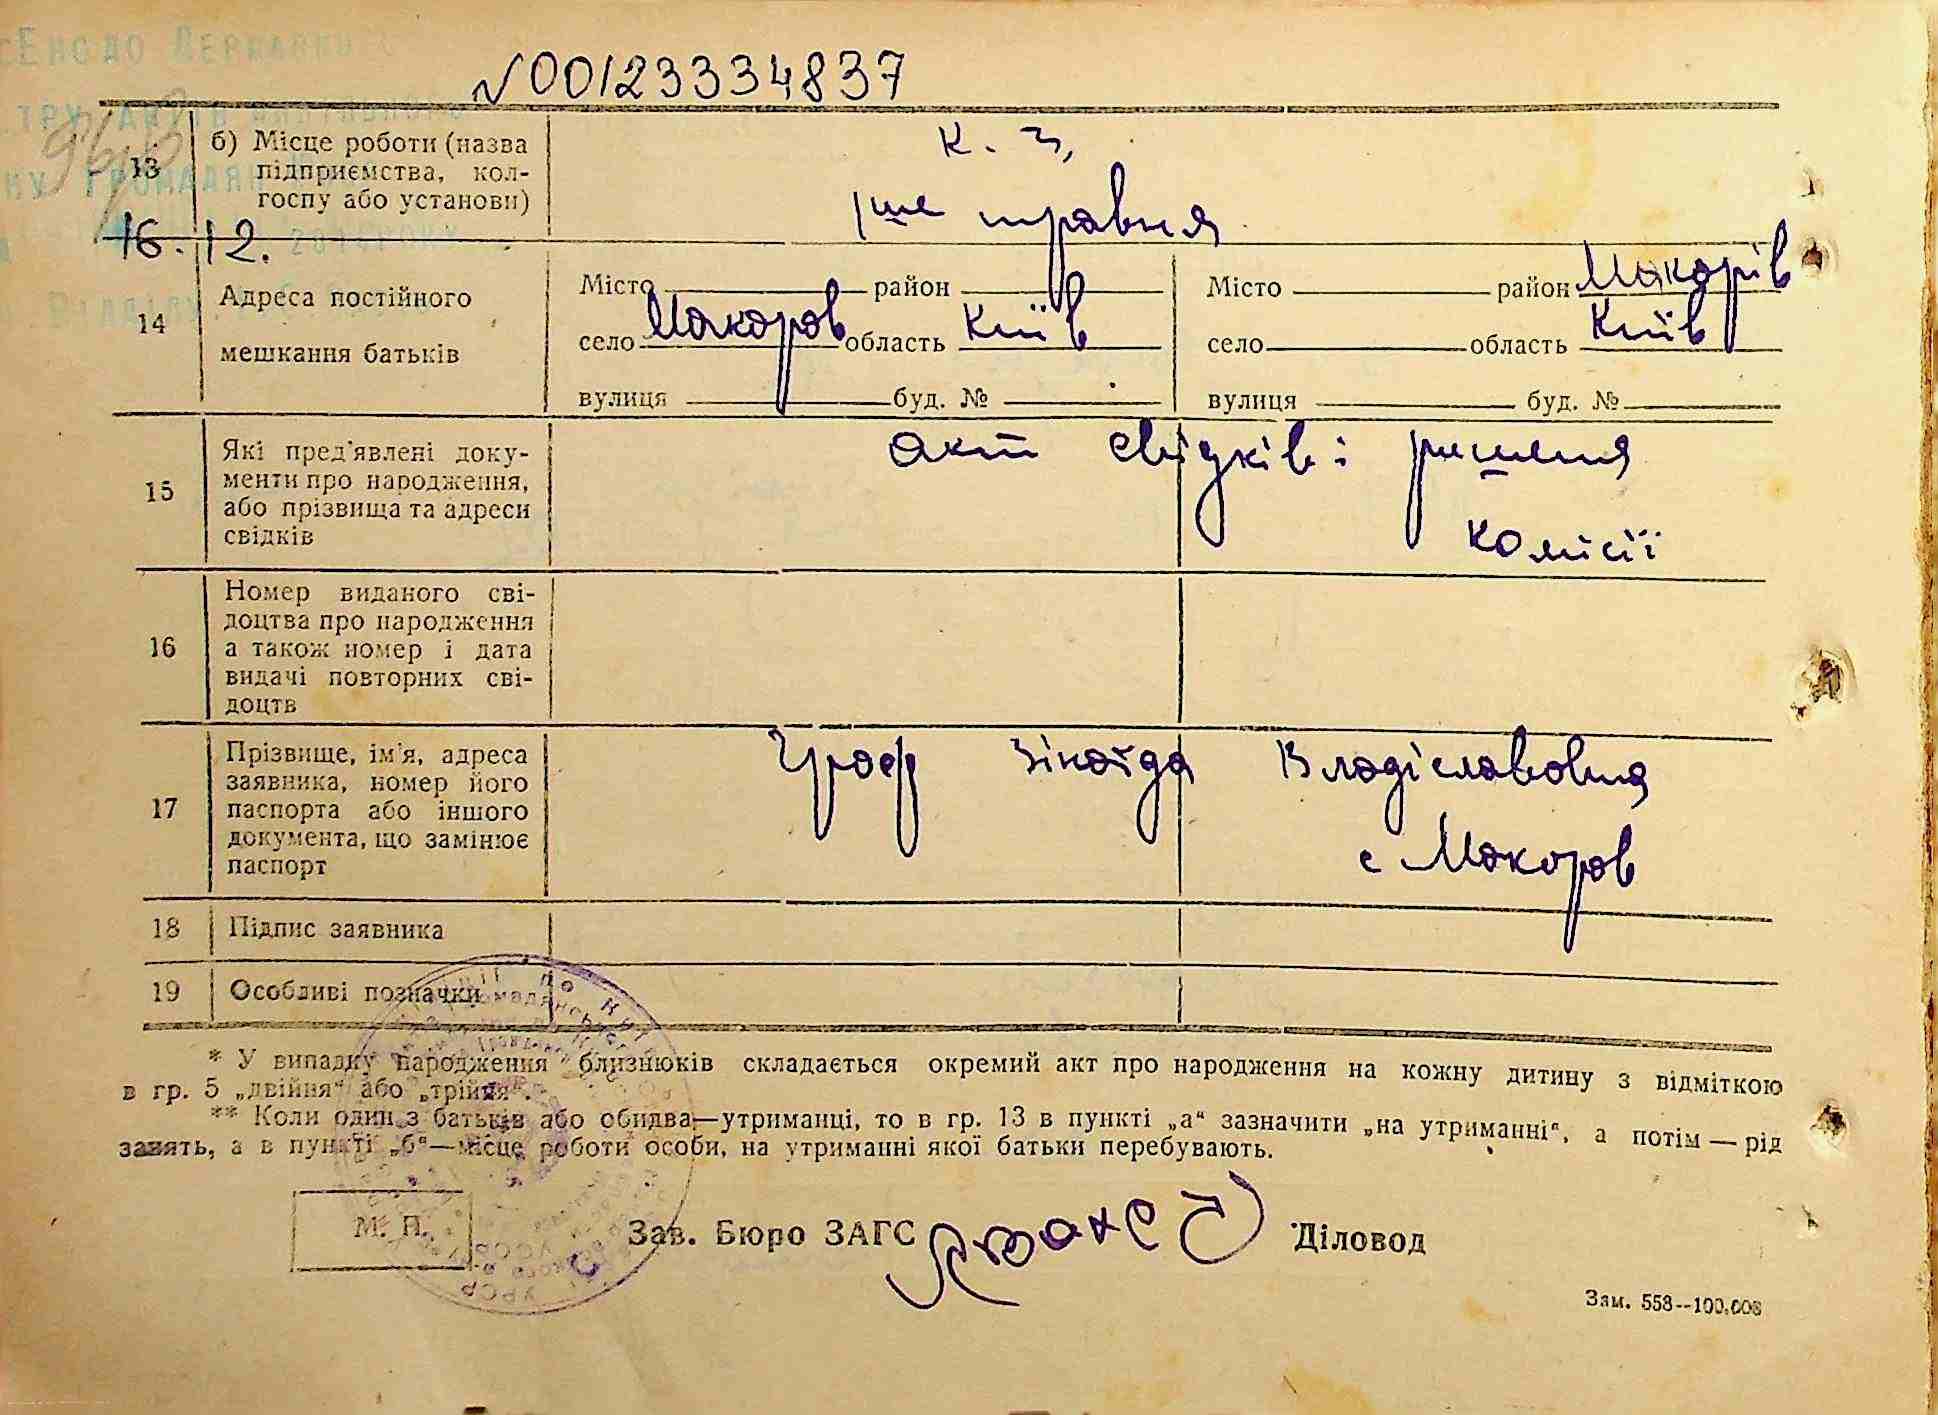 №00123334837
13
б) Місце роботи (назва
підприємства, кол-
госпу або установи)
к. з,
1ше травня
16.12.
14
Адреса постійного
мешкання батьків
Місто район
село Макоров область Київ
вулиця буд. №
Місто район Макорів
село область Київ
вулиця буд. №
15
Які пред'явлені доку-
менти про народження,
або прізвища та адреси
свідків
акт свідків і рішеня
комісії
16
Номер виданого сві-
доцтва про народження
а також номер і дата
видачі повторних сві-
доцтв
17
Прізвище, ім'я, адреса
заявника, номер його
паспорта або іншого
документа, що замінює
паспорт
Граф Зінаїда Владіславовня
с Макоров
18
Підпис заявника
19
Особливі позначки
* У випадку народження близнюків складається окремий акт про народження на кожну дитину з відміткою
в гр. 5 „двійня“ або „трійня“.
** Коли один з батьків або обидва—утриманці, то в гр. 13 в пункті „а“ зазначити „на утриманні“, а потім — рід
занять, а в пункті „б“—місце роботи особи, на утриманні якої батьки перебувають.
М. П.
Зав. Бюро ЗАГС
Діловод
Зам. 558--100.000